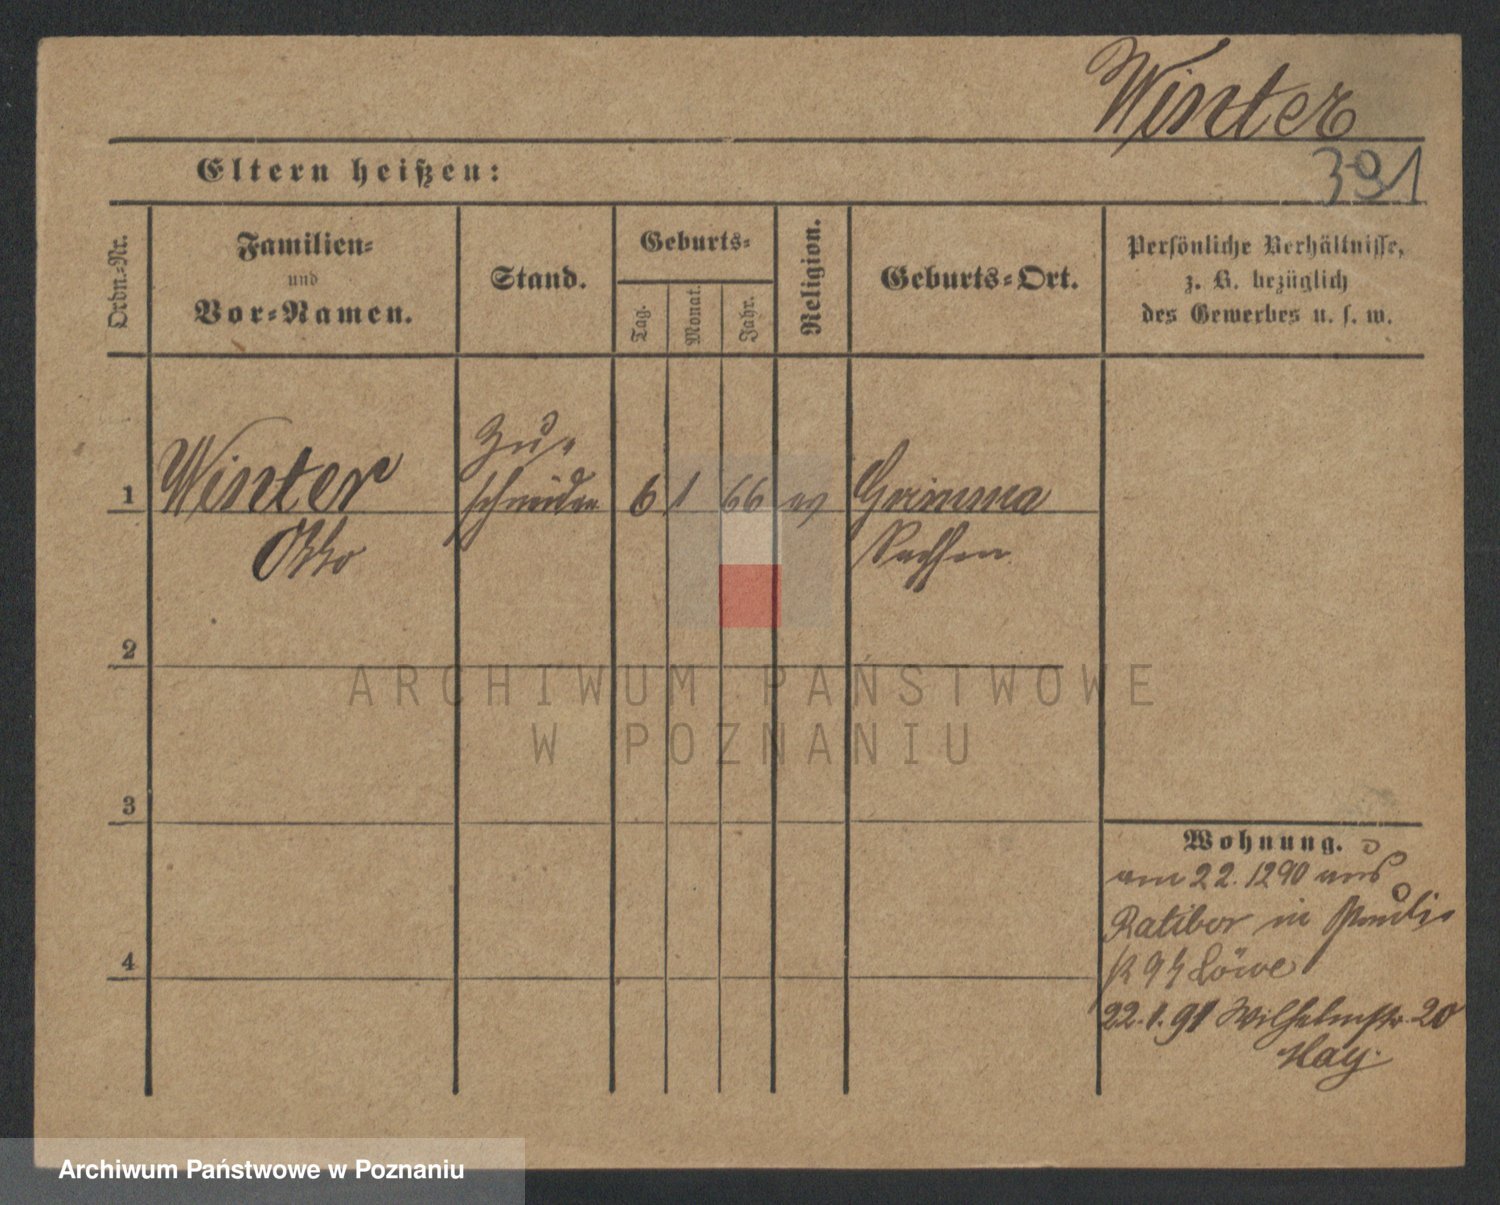 Winter
391
Eltern heißen:
Ordn.-Nr.
Familien-
und
Vor-Namen.
Stand.
Geburts-
Tag.
Monat.
Jahr.
Religion.
Geburts-Ort.
Persönliche Verhältnisse,
z. B. bezüglich
des Gewerbes u. s. w.
1
Winter
Otto
Zu-
schneider
6
1
66
ev
Grimma
Sachsen
2
3
4
Wohnung.
am 22. 12 90 aus
Ratibor in Pauli-
Löwe
22. 1. 91 Wilhelmstr. 20
May.
ARCHIWUM PAŃSTWOWE
W POZNANIU
Archiwum Państwowe w Poznaniu